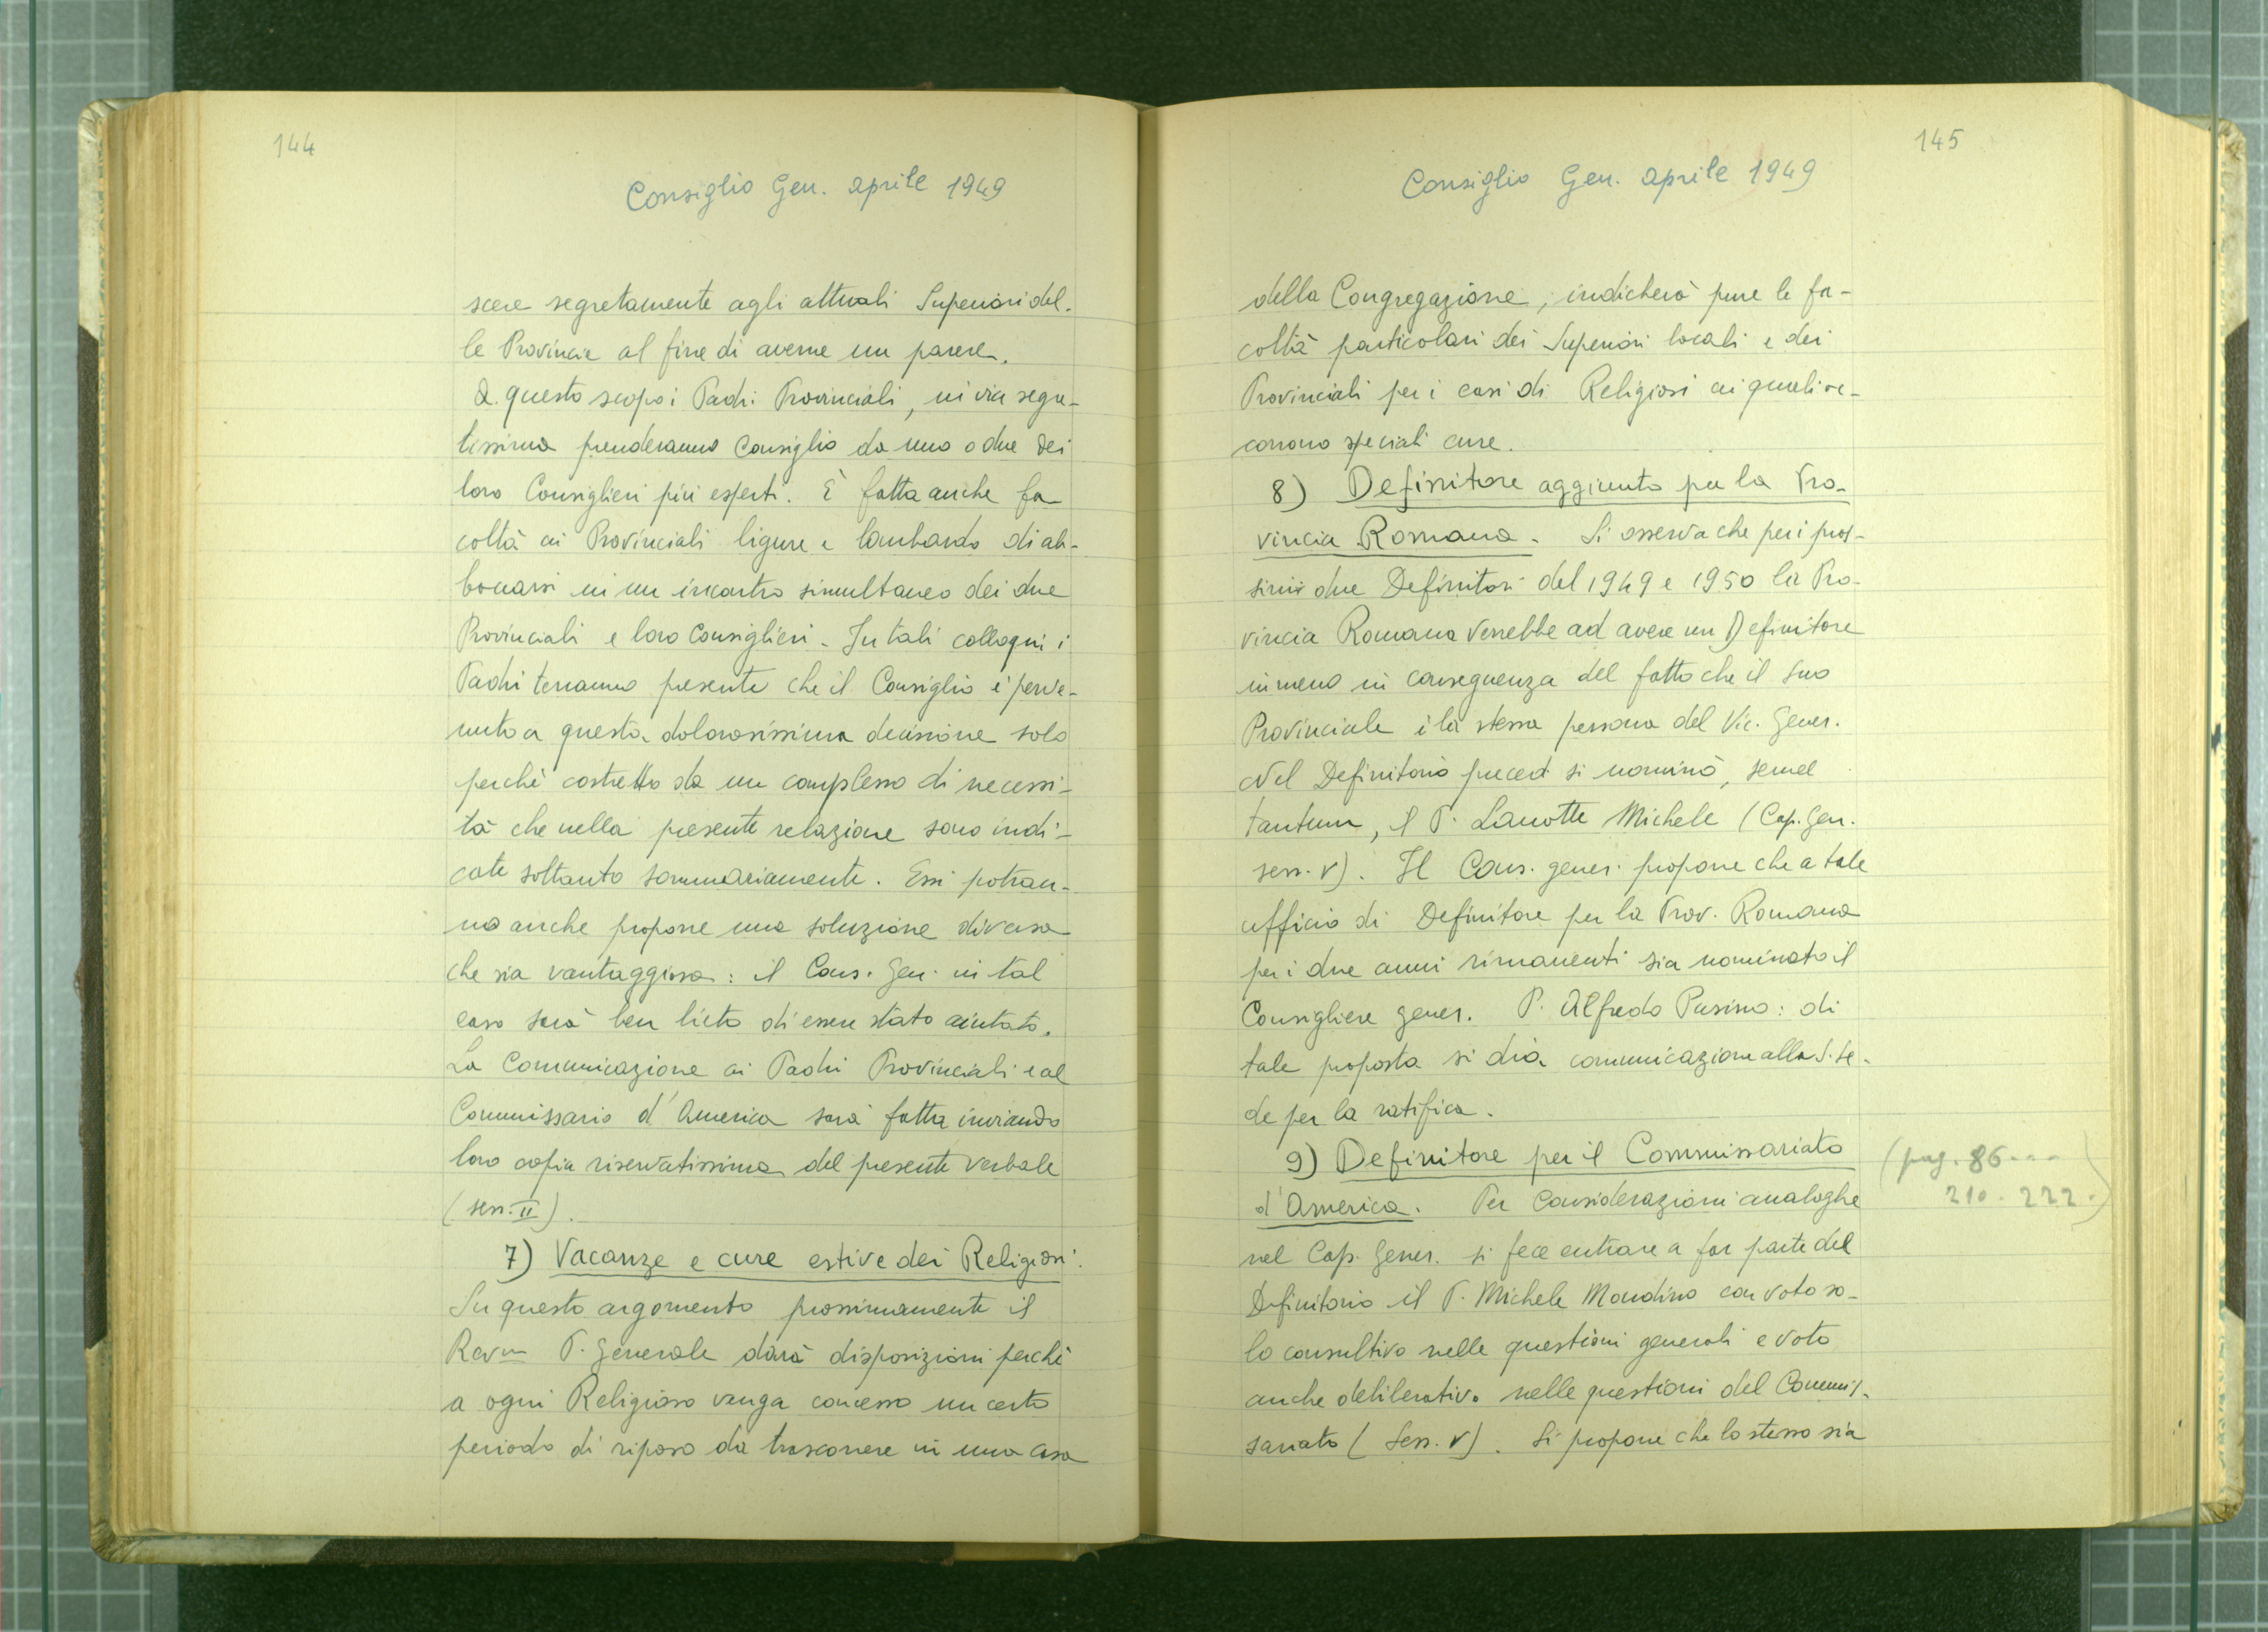 144
Consiglio Gen. aprile 1949
scere segretamente agli attuali Superiori del-
le Provincie al fine di averne un parere.
A questo scopo i Padri Provinciali, in via segre-
tissima prenderanno Consiglio da uno o due dei
loro Consiglieri più esperti. È fatta anche fa-
coltà ai Provinciali ligure e lombardo di ab-
boccarsi in un incontro simultaneo dei due
Provinciali e loro Consiglieri. In tali colloqui i
Padri terranno presente che il Consiglio è perve-
nuto a questa dolorosissima decisione solo
perchè costretto da un complesso di necessi-
tà che nella presente relazione sono indi-
cate soltanto sommariamente. Essi potran-
no anche proporre una soluzione diversa
che sia vantaggiosa: il Cons. Gen. in tal
caso sarà ben lieto di essere stato aiutato.
La Comunicazione ai Padri Provinciali e al
Commissario d'America sarà fatta inviando
loro copia riservatissima del presente verbale
(sess. II).
7) Vacanze e cure estive dei Religiosi.
Su questo argomento prossimamente il
Rev.m P. Generale darà disposizioni perchè
a ogni Religioso venga concesso un certo
periodo di riposo da trascorrere in una casa
145
Consiglio Gen. aprile 1949
della Congregazione; indicherà pure le fa-
coltà particolari dei Superiori locali e dei
Provinciali per i casi di Religiosi ai quali oc-
corrono speciali cure.
8) Definitore aggiunto per la Pro-
vincia Romana. Si osserva che per i pros-
simi due Definitori del 1949 e 1950 la Pro-
vincia Romana verrebbe ad avere un Definitore
in meno in conseguenza del fatto che il suo
Provinciale è la stessa persona del Vic. Gener.
Nel Definitorio preced. si nominò, semel
tantum, il P. Lanotte Michele (Cap. Gen.
sess. V). Il Cons. gener. propone che a tale
ufficio di Definitore per la Prov. Romana
per i due anni rimanenti sia nominato il
Consigliere gener. P. Alfredo Pusino: di
tale proposta si dia comunicazione alla S. Se-
de per la ratifica.
9) Definitore per il Commissariato
d'America. Per Considerazioni analoghe
nel Cap. Gener. si fece entrare a far parte del
Definitorio il P. Michele Mondino con voto so-
lo consultivo nelle questioni generali e voto
anche deliberativo nelle questioni del Commis-
sariato (Sess. V). Si propone che lo stesso sia
(pag. 86...
210. 222.)